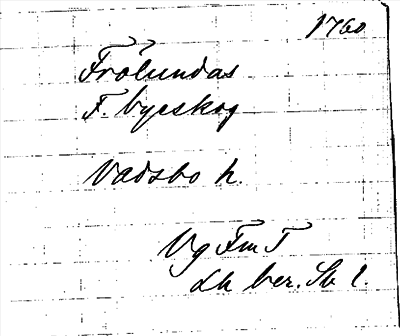 1760
Frölundas
F. byeskog
Vadsbo h.
Vg FmT
Lh ber. Sk l.